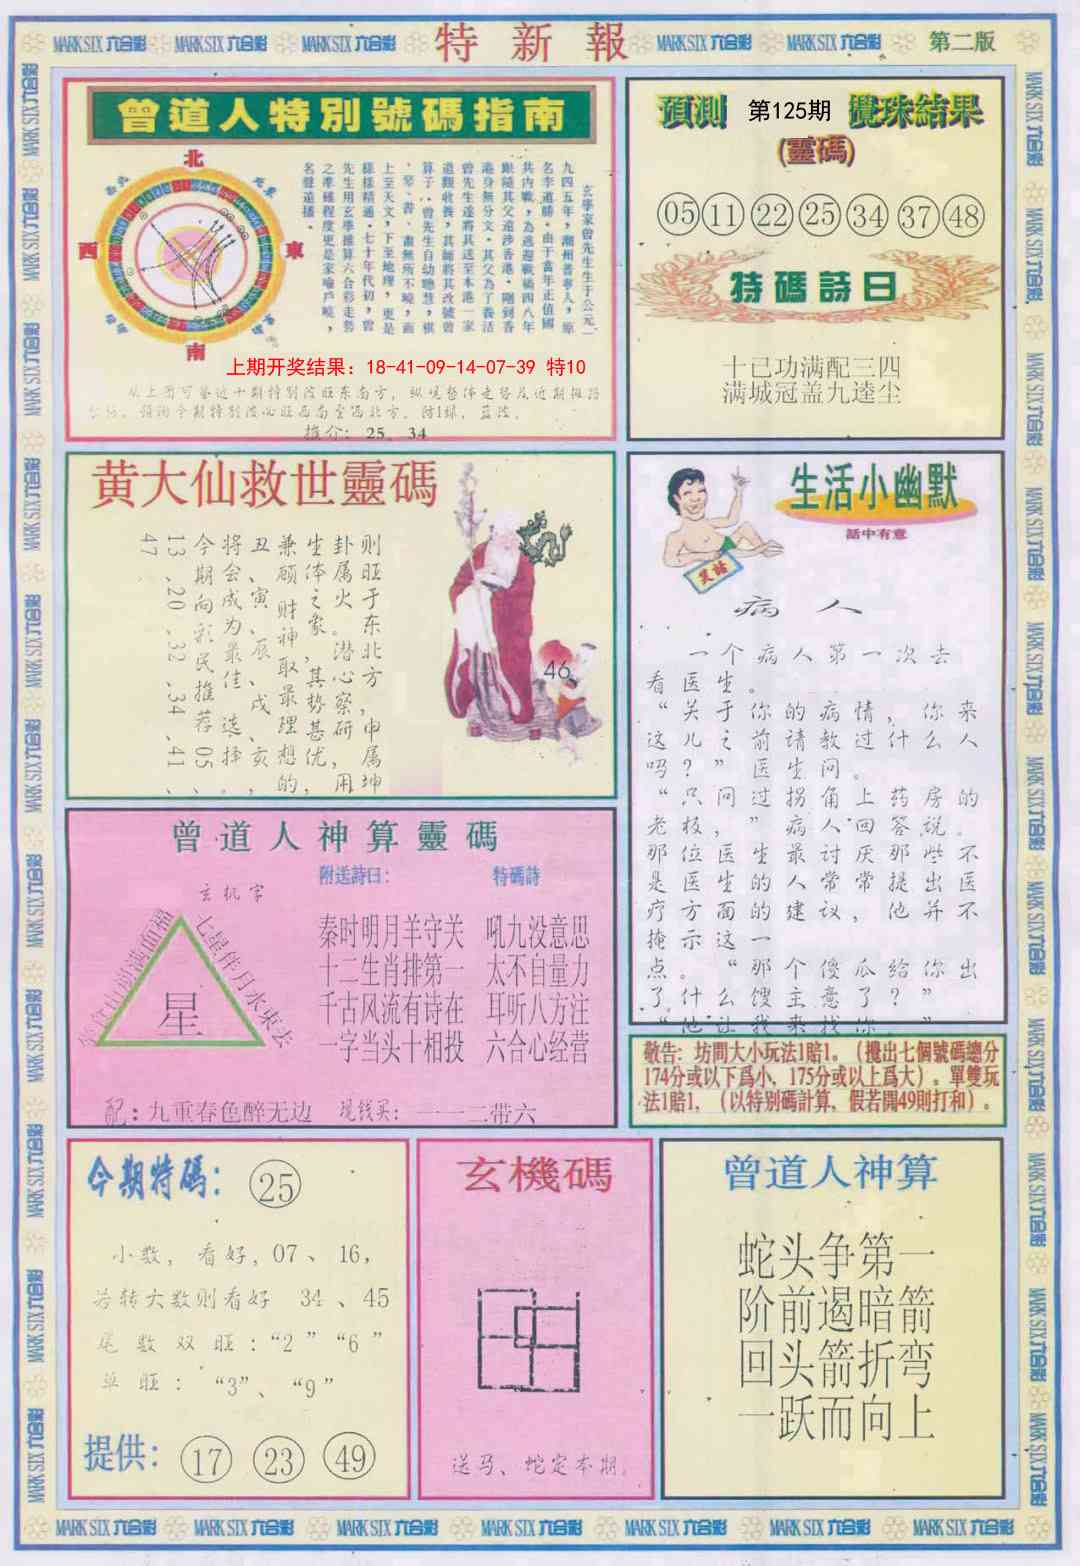 MARK SIX 六合彩 MARK SIX 六合彩 MARK SIX 六合彩 特新報 MARK SIX 六合彩 MARK SIX 六合彩 第二版
曾道人特別號碼指南
北
西
東
南
玄學家曾先生生于公元一
九四五年，潮州普寧人，原
名李道勝。由于當年正值國
共内戰，為逃避戰禍四八年
跟隨其父遠涉香港。剛到香
港身無分文。其父為了養活
曾先生遂將其送至本港一家
道觀收養，其師將其改號曾
算子。曾先生自幼聰慧，棋
、琴、書、畫無所不曉，而
上至天文，下至地理，更是
樣樣精通。七十年代初，曾
先生用玄學推算六合彩走勢
之準確程度更是家喻戶曉，
名聲遠播。
上期开奖结果：18-41-09-14-07-39 特10
从上图可鉴近十期特别波旺东南方，纵观整体走势及近期极路
推介：25、34
預測 第125期 攪珠結果
(靈碼)
05 11 22 25 34 37 48
特碼詩曰
十已功满配三四
满城冠盖九逵尘
黄大仙救世靈碼
则旺于东北方，申属坤
卦属火。潜心察研，用
生体之象，其势甚优，
兼顾财神取最理想的，
丑、寅、辰、戌、亥
将会成为最佳选择。
今期向彩民推荐05、
13、20、32、34、41、
47
46
生活小幽默
話中有意
笑話
病人
一个病人第一次去
看医生。
“关于你的病情，你来
这儿之前请教过什么人
吗？”医生问。
“只问过拐角上药房的
老板，”病人回答说。
那位医生最讨厌那些不
是医生的人常常提出医
疗方面的建议，他并不
掩示这一
点。“那个傻瓜给你出
了什么馊主意了？”
“他让我来找你。”
曾道人神算靈碼
玄机字
七星伴月水東去
星
附送詩曰：
秦时明月羊守关
十二生肖排第一
千古风流有诗在
一字当头十相投
特碼詩
吼九没意思
太不自量力
耳听八方注
六合心经营
配：九重春色醉无边 现钱买：一一二带六
敬告：坊間大小玩法1賠1。（攪出七個號碼總分
174分或以下爲小，175分或以上爲大）。單雙玩
法1賠1，（以特別碼計算，假若開49則打和）。
今期特碼： 25
小数，看好，07、16，
若转大数则看好 34、45
尾数双旺：“2”“6”
单旺：“3”、“9”
提供： 17 23 49
玄機碼
送马、蛇定本期。
曾道人神算
蛇头争第一
阶前遏暗箭
回头箭折弯
一跃而向上
MARK SIX 六合彩 MARK SIX 六合彩 MARK SIX 六合彩 MARK SIX 六合彩 MARK SIX 六合彩 MARK SIX 六合彩 MARK SIX 六合彩